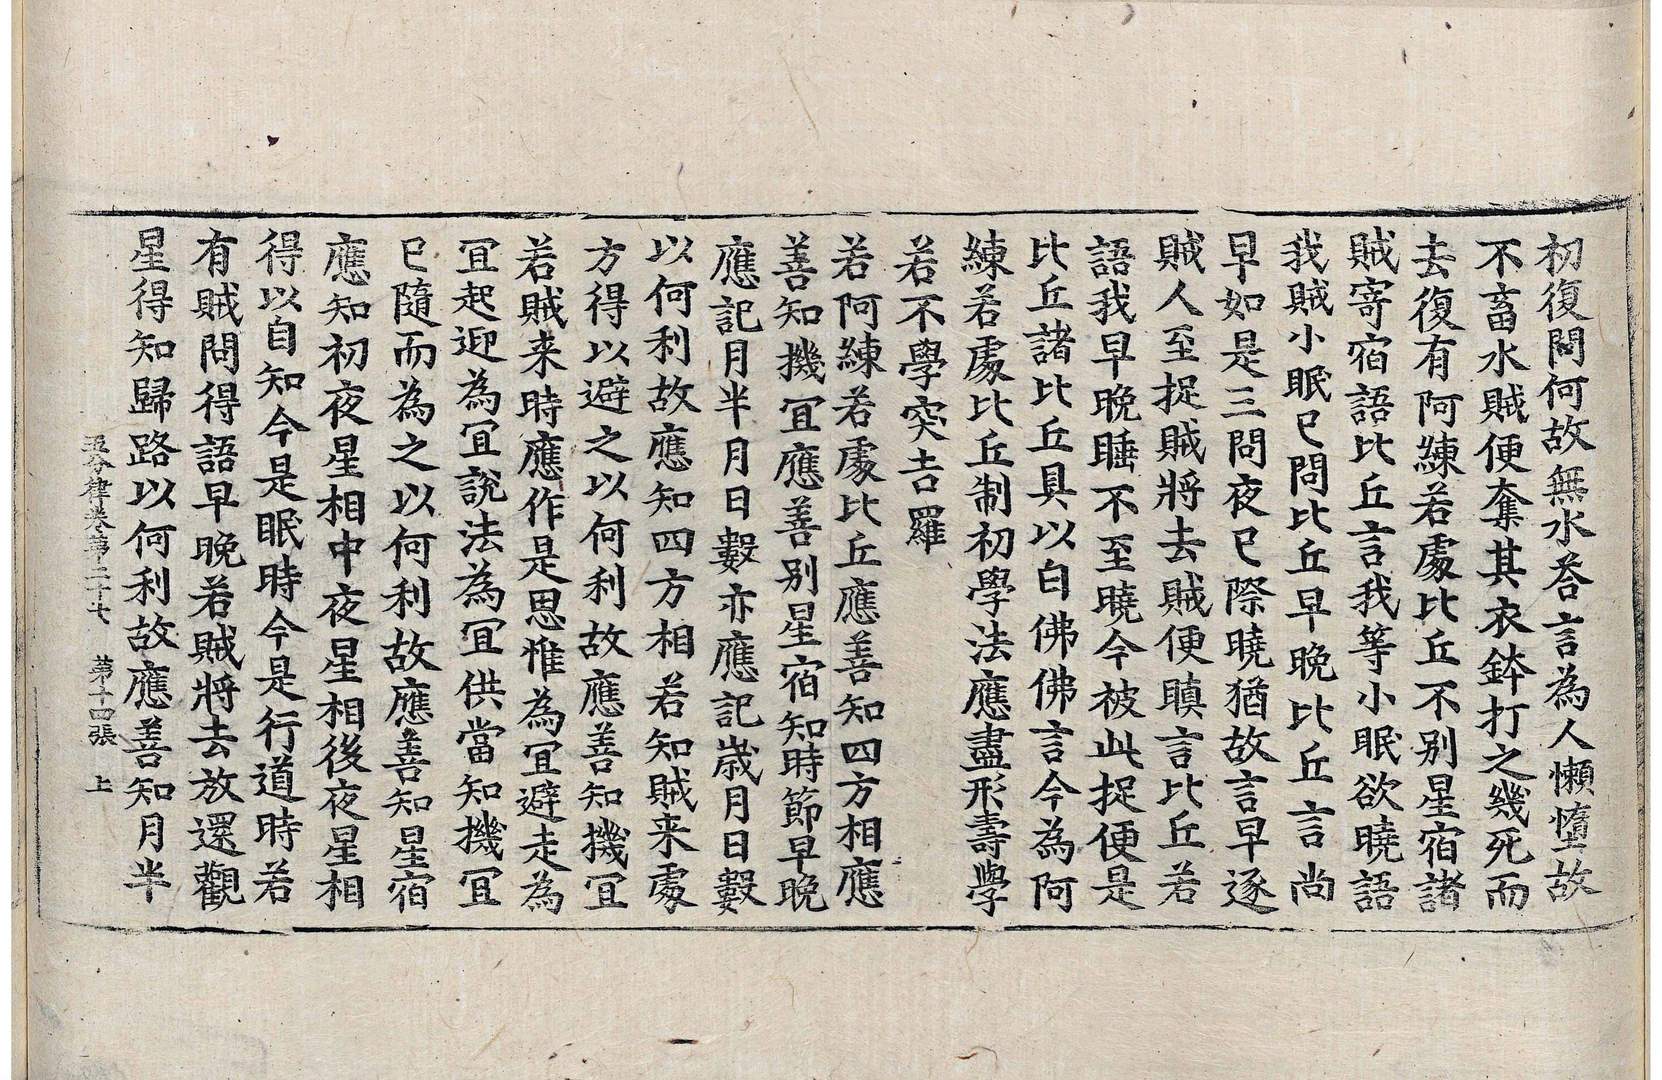 初復問何故無水荅言為人懶墮故
不畜水賊便奪其衣鉢打之幾死而
去復有阿練若處比丘不别星宿諸
賊寄宿語比丘言我等小眠欲曉語
我賊小眠已問比丘早晚比丘言尚
早如是三問夜已際曉猶故言早逐
賊人至捉賊將去賊便瞋言比丘若
語我早晚睡不至曉今被此捉便是
比丘諸比丘具以白佛佛言今為阿
練若處比丘制初學法應盡形壽學
若不學突吉羅
若阿練若處比丘應善知四方相應
善知機宜應善别星宿知時節早晚
應記月半月日數亦應記歲月日數
以何利故應知四方相若知賊来處
方得以避之以何利故應善知機宜
若賊来時應作是思惟為宜避走為
宜起迎為宜說法為宜供當知機宜
已隨而為之以何利故應善知星宿
應知初夜星相中夜星相後夜星相
得以自知今是眠時今是行道時若
有賊問得語早晚若賊將去放還觀
星得知歸路以何利故應善知月半
五分律卷第二十七 第十四張 上